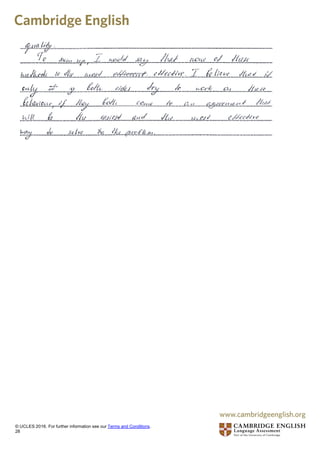 Cambridge English
quality.
To sum up, I would say that none of these
methods is the most efficient effective. I believe that if
only if both sides try to work on their
behaviour, if they both come to an agreement that
will be the easiest and the most effective
way to solve the problem.
www.cambridgeenglish.org
© UCLES 2016. For further information see our Terms and Conditions.
28
CAMBRIDGE ENGLISH
Language Assessment
Part of the University of Cambridge